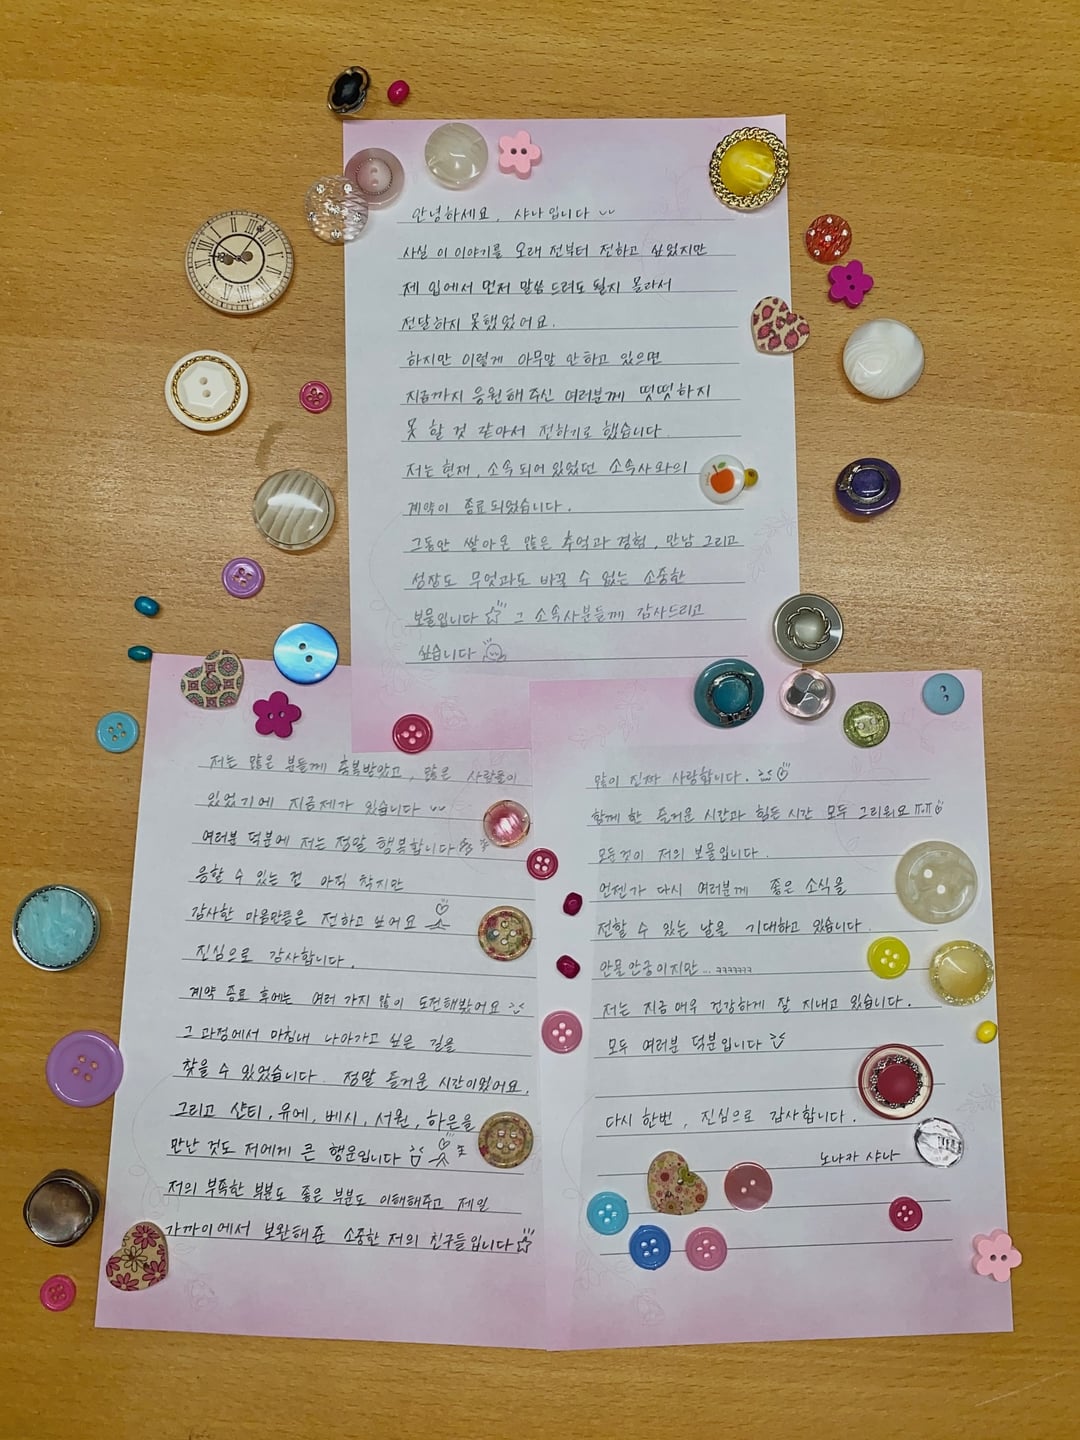 안녕하세요, 샤나입니다
사실 이 이야기를 오래 전부터 전하고 싶었지만
제 입에서 먼저 말씀 드려도 될지 몰라서
전달하지 못했었어요.
하지만 이렇게 아무말 안하고 있으면
지금까지 응원해주신 여러분께 떳떳하지
못 할 것 같아서 전하기로 했습니다.
저는 현재, 소속되어 있었던 소속사와의
계약이 종료되었습니다.
그동안 쌓아온 많은 추억과 경험, 만남 그리고
성장도 무엇과도 바꿀 수 없는 소중한
보물입니다 그 소속사분들께 감사드리고
싶습니다
저는 많은 분들께 축복받았고, 많은 사람들이
있었기에 지금제가 있습니다
여러분 덕분에 저는 정말 행복합니다
응할 수 있는 건 아직 작지만
감사한 마음만큼은 전하고 싶어요
진심으로 감사합니다.
계약 종료 후에는 여러 가지 많이 도전해봤어요
그 과정에서 마침내 나아가고 싶은 길을
찾을 수 있었습니다. 정말 즐거운 시간이었어요.
그리고 샨티, 유에, 베시, 서원, 하은을
만난 것도 저에게 큰 행운입니다
저의 부족한 부분도 좋은 부분도 이해해주고 제일
가까이에서 보완해준 소중한 저의 친구들입니다
많이 진짜 사랑합니다.
함께 한 즐거운 시간과 힘든 시간 모두 그리워요 ㅠㅠ
모든것이 저의 보물입니다.
언젠가 다시 여러분께 좋은 소식을
전할 수 있는 날을 기대하고 있습니다.
안물안궁이지만... ㅋㅋㅋㅋㅋㅋㅋ
저는 지금 매우 건강하게 잘 지내고 있습니다.
모두 여러분 덕분입니다
다시 한번, 진심으로 감사합니다.
노나카 샤나